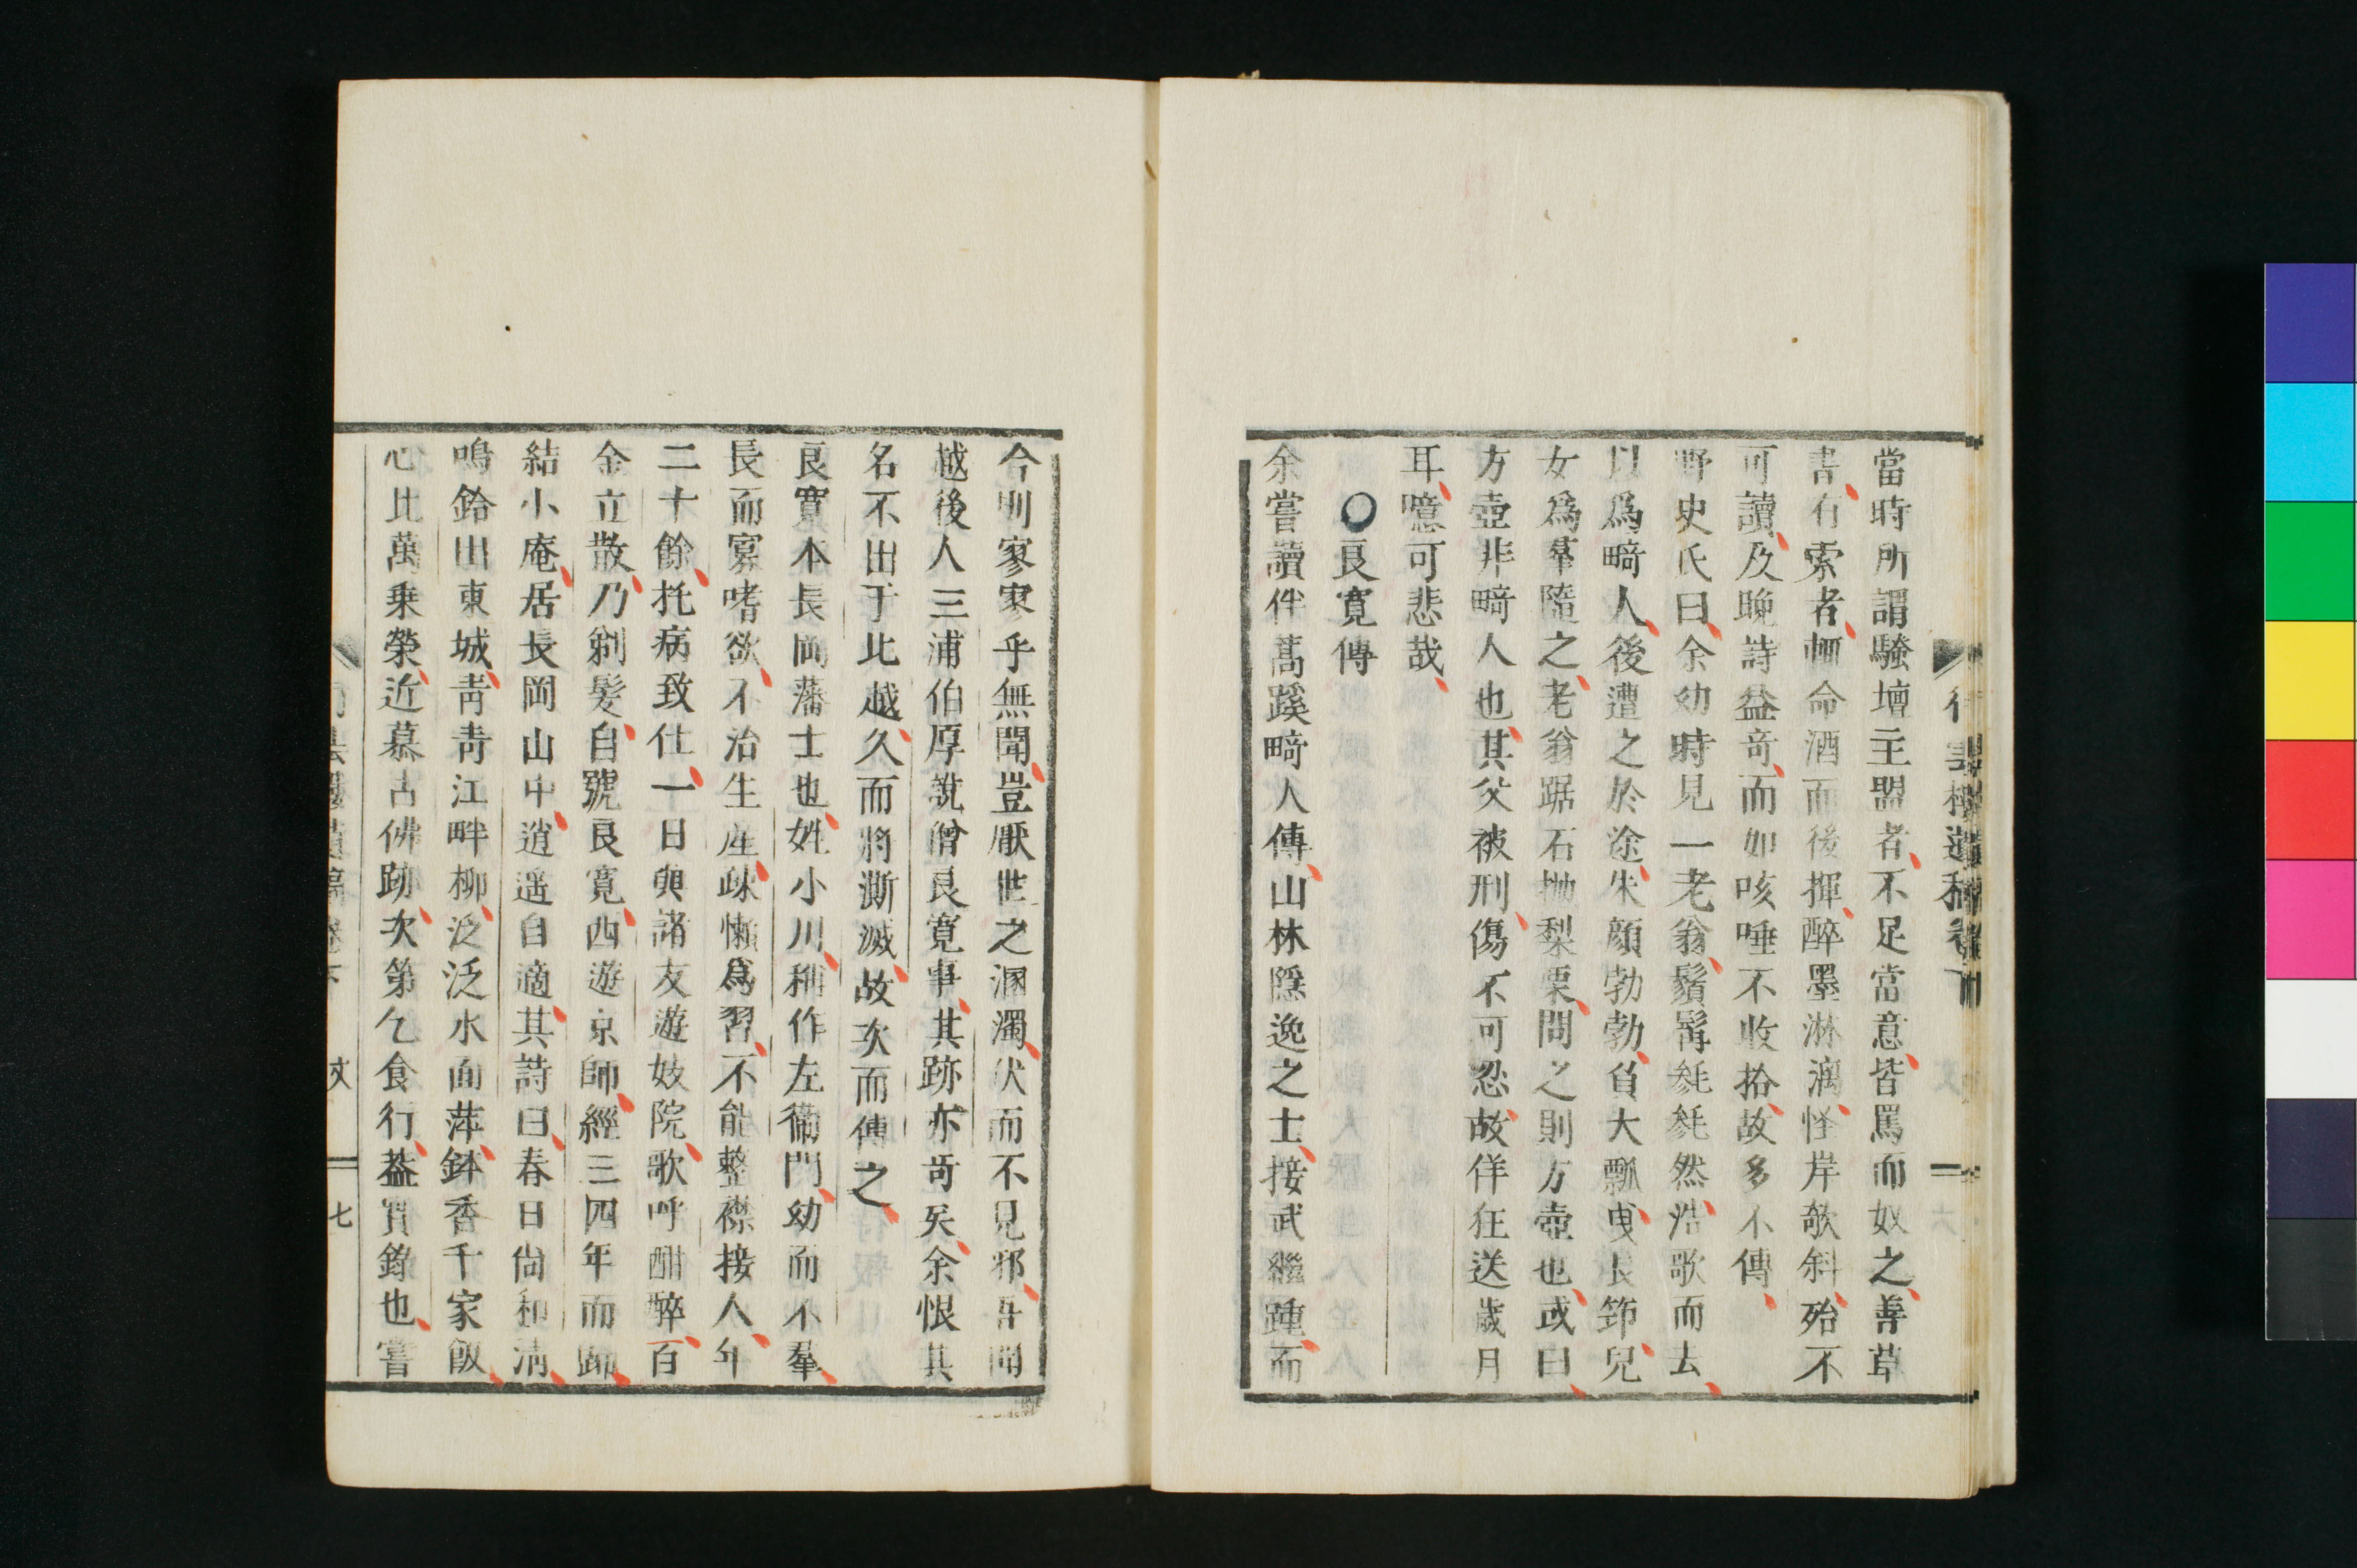 當時所謂騷壇主盟者不足當意皆罵而奴之善草
書有索者輒命酒而後揮醉墨淋漓怪岸欹斜殆不
可讀及晚詩益奇而如咳唾不收拾故多不傳
野史氏曰余幼時見一老翁鬚髯毿毿然浩歌而去
以爲畸人後遭之於途朱顔勃勃負大瓢曳長筇兒
女爲羣隨之老翁踞石抛梨栗問之則方壺也或曰
方壺非畸人也其父被刑傷不可忍故佯狂送歲月
耳噫可悲哉
〇良寬傳
余嘗讀伴蒿蹊畸人傳山林隱逸之士接武繼踵而
今則寥寥乎無聞豈厭世之溷濁伏而不見邪吾聞
越後人三浦伯厚説僧良寛事其跡亦奇矣余恨其
名不出于北越久而將澌滅故次而傳之
良寛本長岡藩士也姓小川稱作左衞門幼而不羣
長而寡嗜欲不治生産疎懶爲習不能整襟接人年
二十餘托病致仕一日與諸友遊妓院歌呼酣醉百
金立散乃剃髮自號良寛西遊京師經三四年而歸
結小庵居長岡山中逍遥自適其詩曰春日尙和淸
鳴鈴出東城靑靑江畔柳泛泛水面萍鉢香千家飯
心比萬乗榮近慕古佛跡次第乞食行葢實錄也嘗
文 七